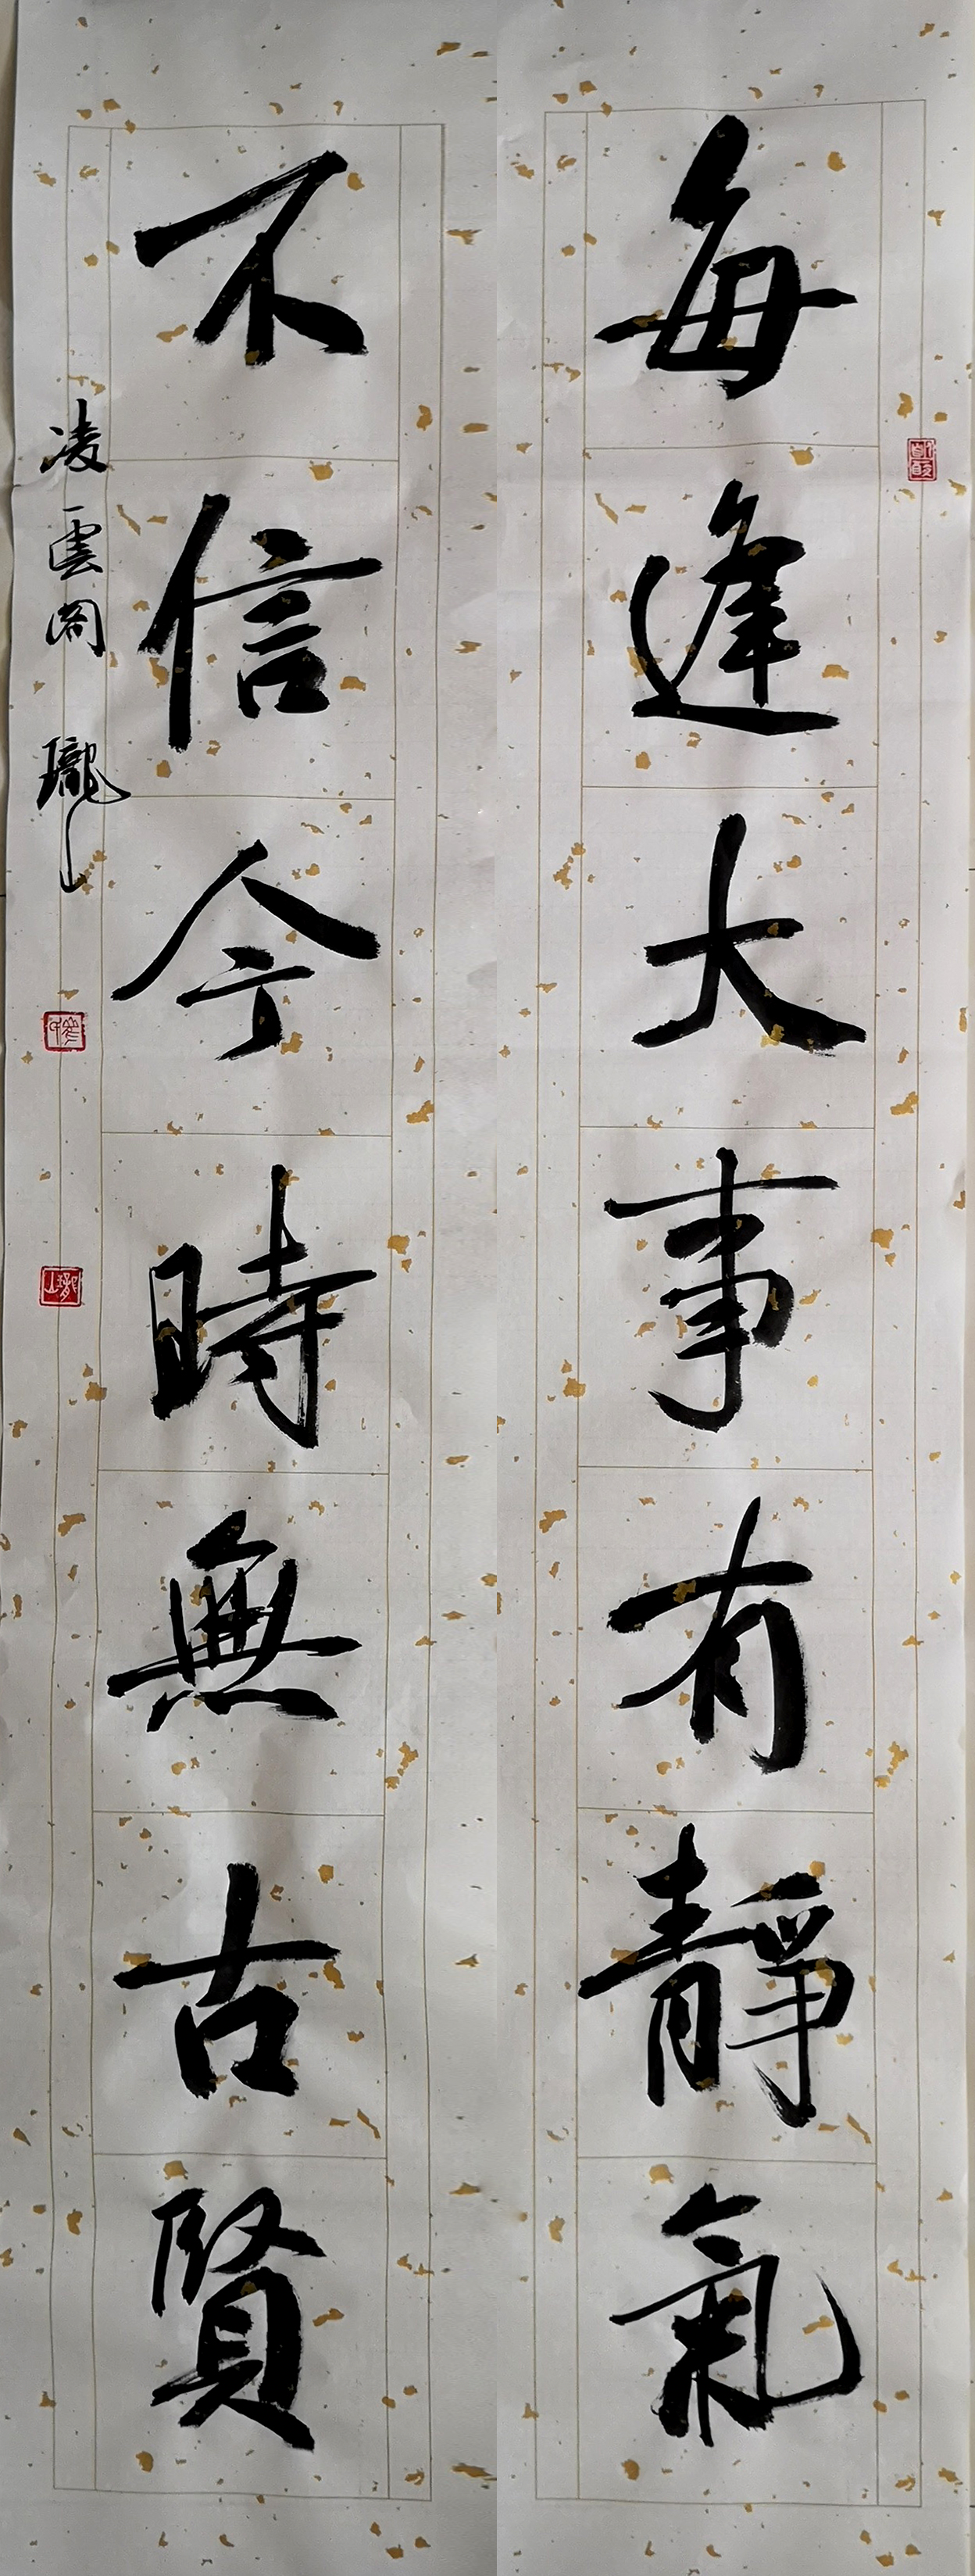 每逢大事有靜氣
不信今時無古賢
凌雲閣 瓏